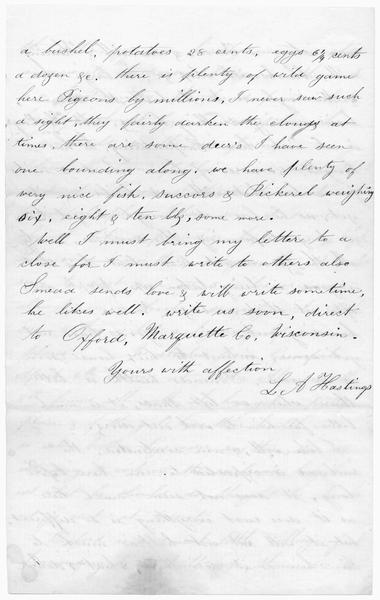 a bushel, potatoes 28 cents, eggs 6¼ cents
a dozen &c. there is plenty of wild game
here Pigeons by millions, I never saw such
a sight, they fairly darken the clouds at
times, there are some deer's I have seen
one bounding along, we have plenty of
very nice fish, succors & Pickerel weighing
six, eight & ten lb, some more.
Well I must bring my letter to a
close for I must write to others also
Smead sends love & will write sometime,
he likes well. write us soon, direct
to Oxford, Marquette Co, Wisconsin.
Yours with affection
L A Hastings